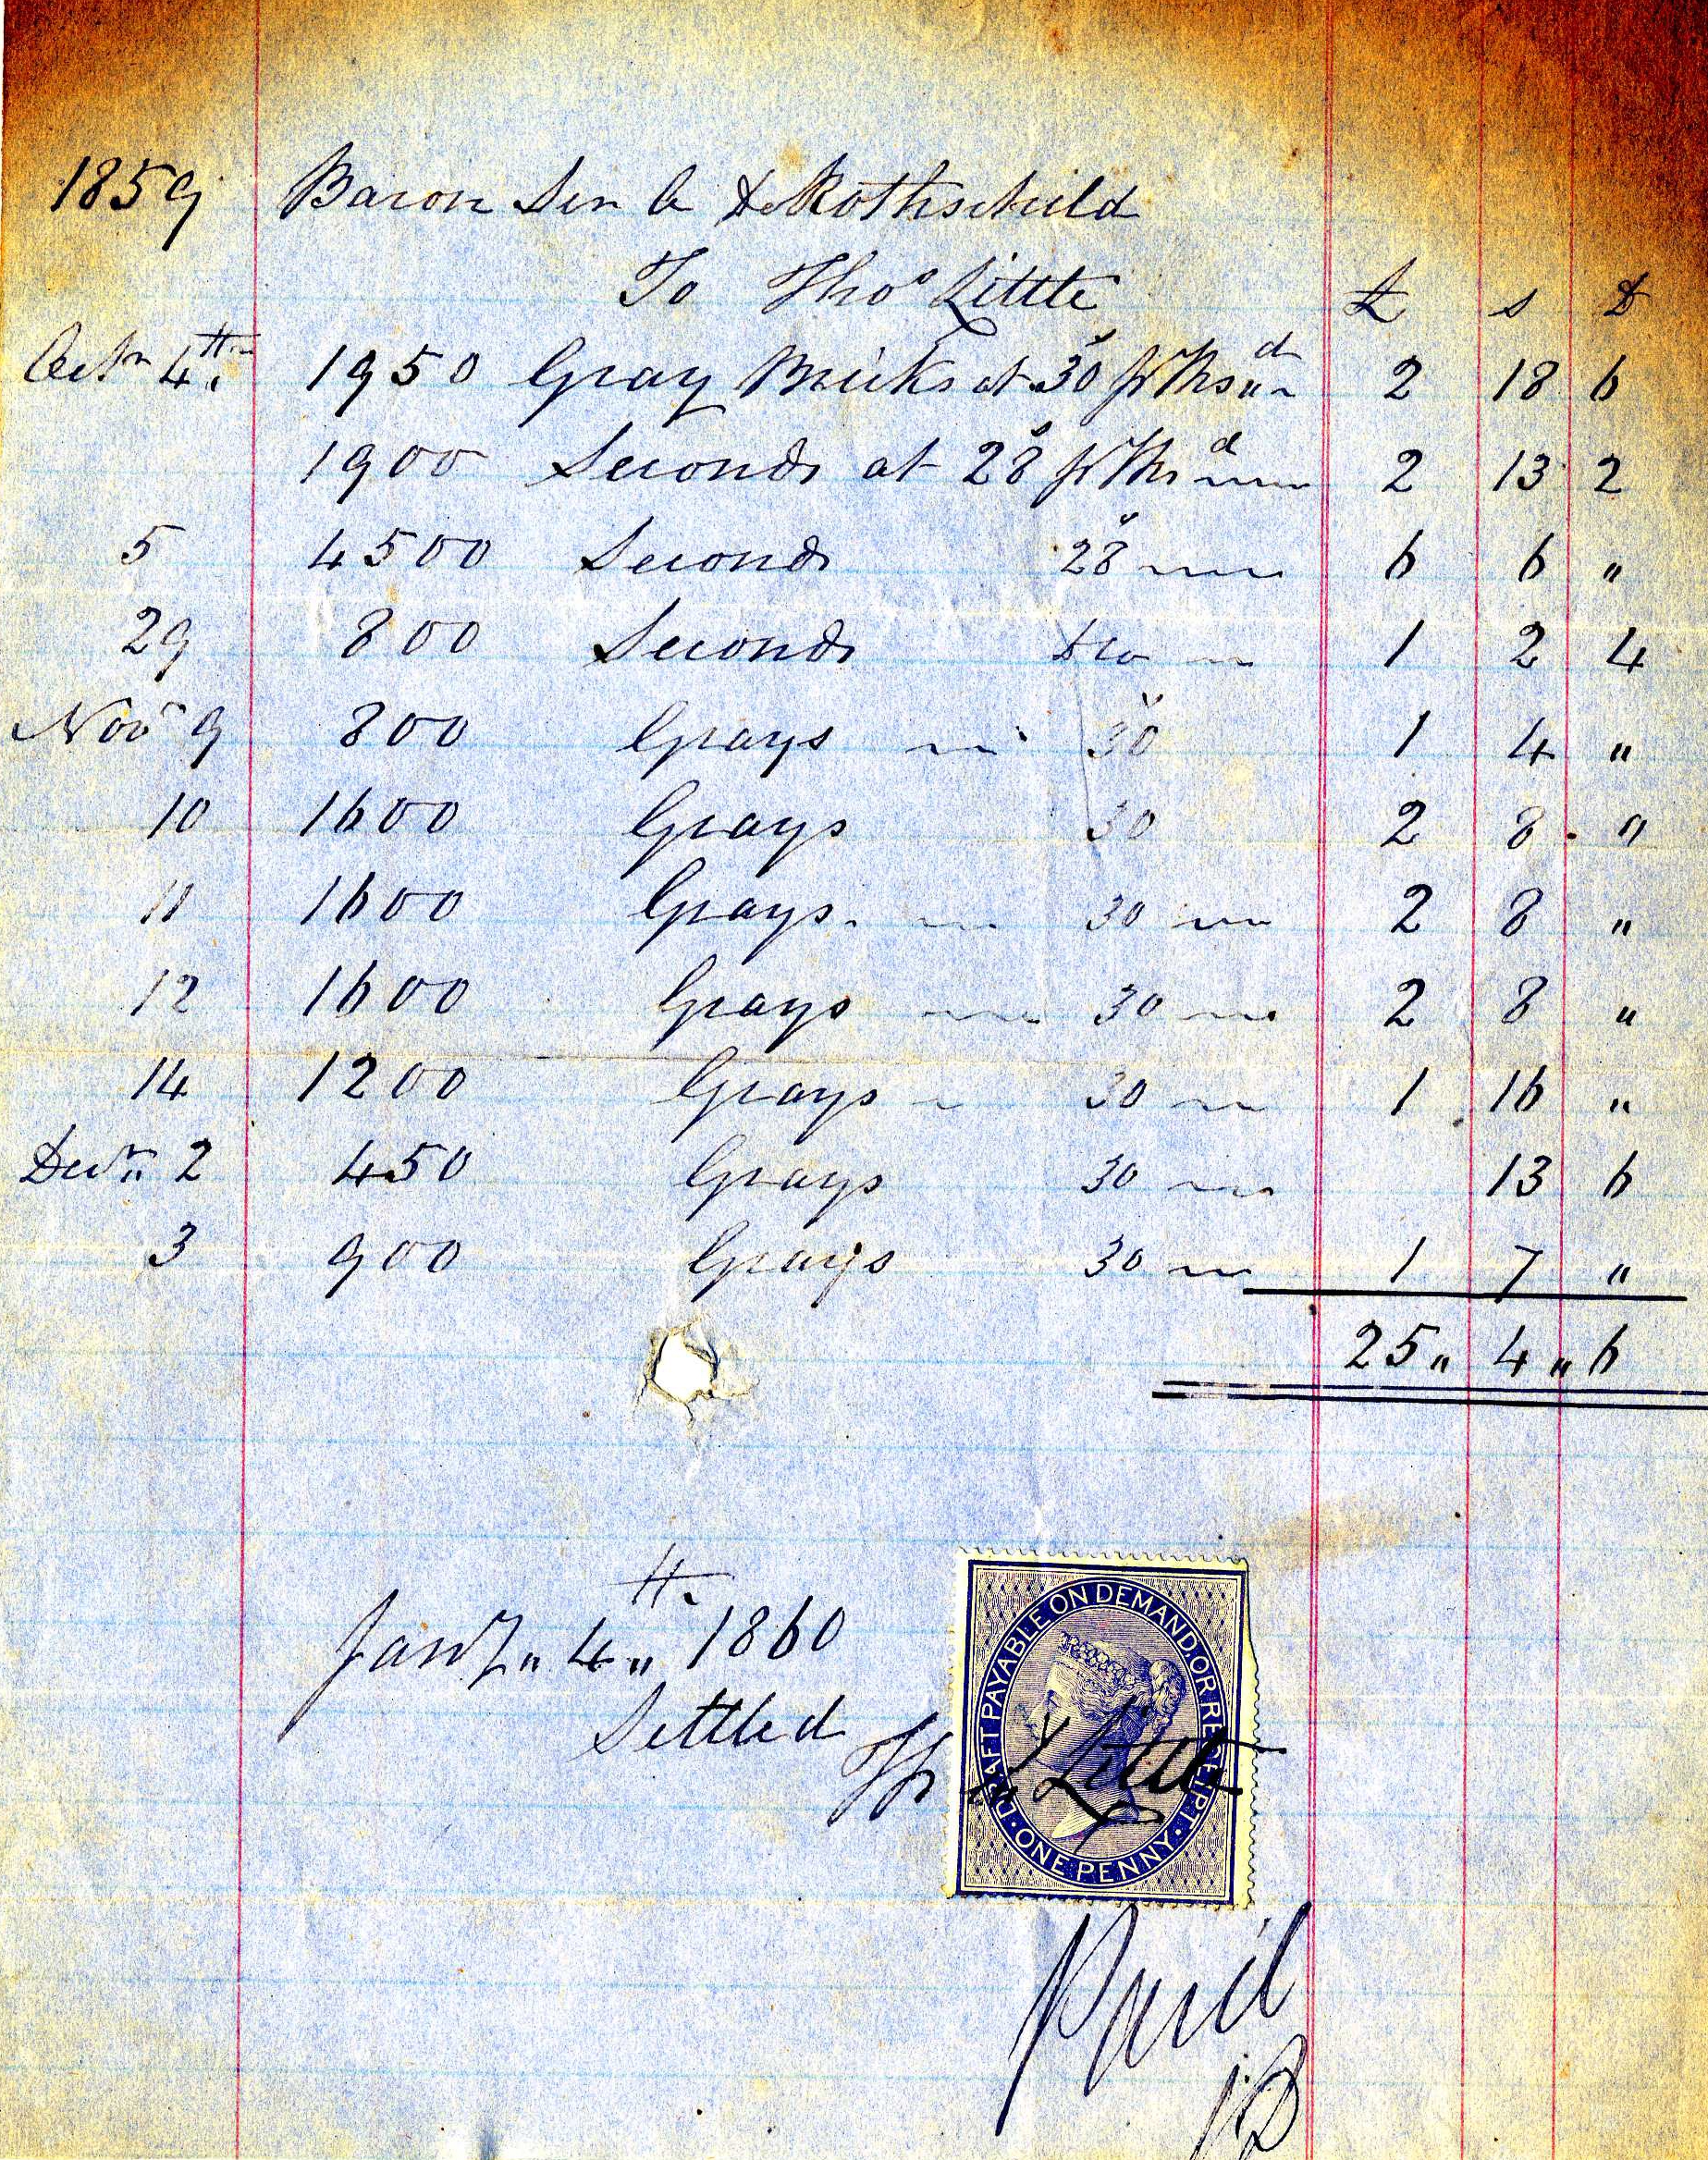 1859 Baron Sir A De Rothschild
To Thos Little £ s D
Octr 4th 1950 Gray Bricks at 30s pr Thsd 2 18 6
1900 Seconds at 28s pr Thsd 2 13 2
5 4500 Seconds 28s 6 6 "
29 800 Seconds Do 1 2 4
Novr 9 800 Grays 30s 1 4 "
10 1600 Grays 30 2 8 "
11 1600 Grays 30 2 8 "
12 1600 Grays 30 2 8 "
14 1200 Grays 30 1 16 "
Decr 2 450 Grays 30 13 6
3 900 Grays 30 1 7 "
25 " 4 " 6
Jany " 4th " 1860
Settled
Thos Little
DRAFT PAYABLE ON DEMAND, OR RECEIPT. ONE PENNY.
Paid